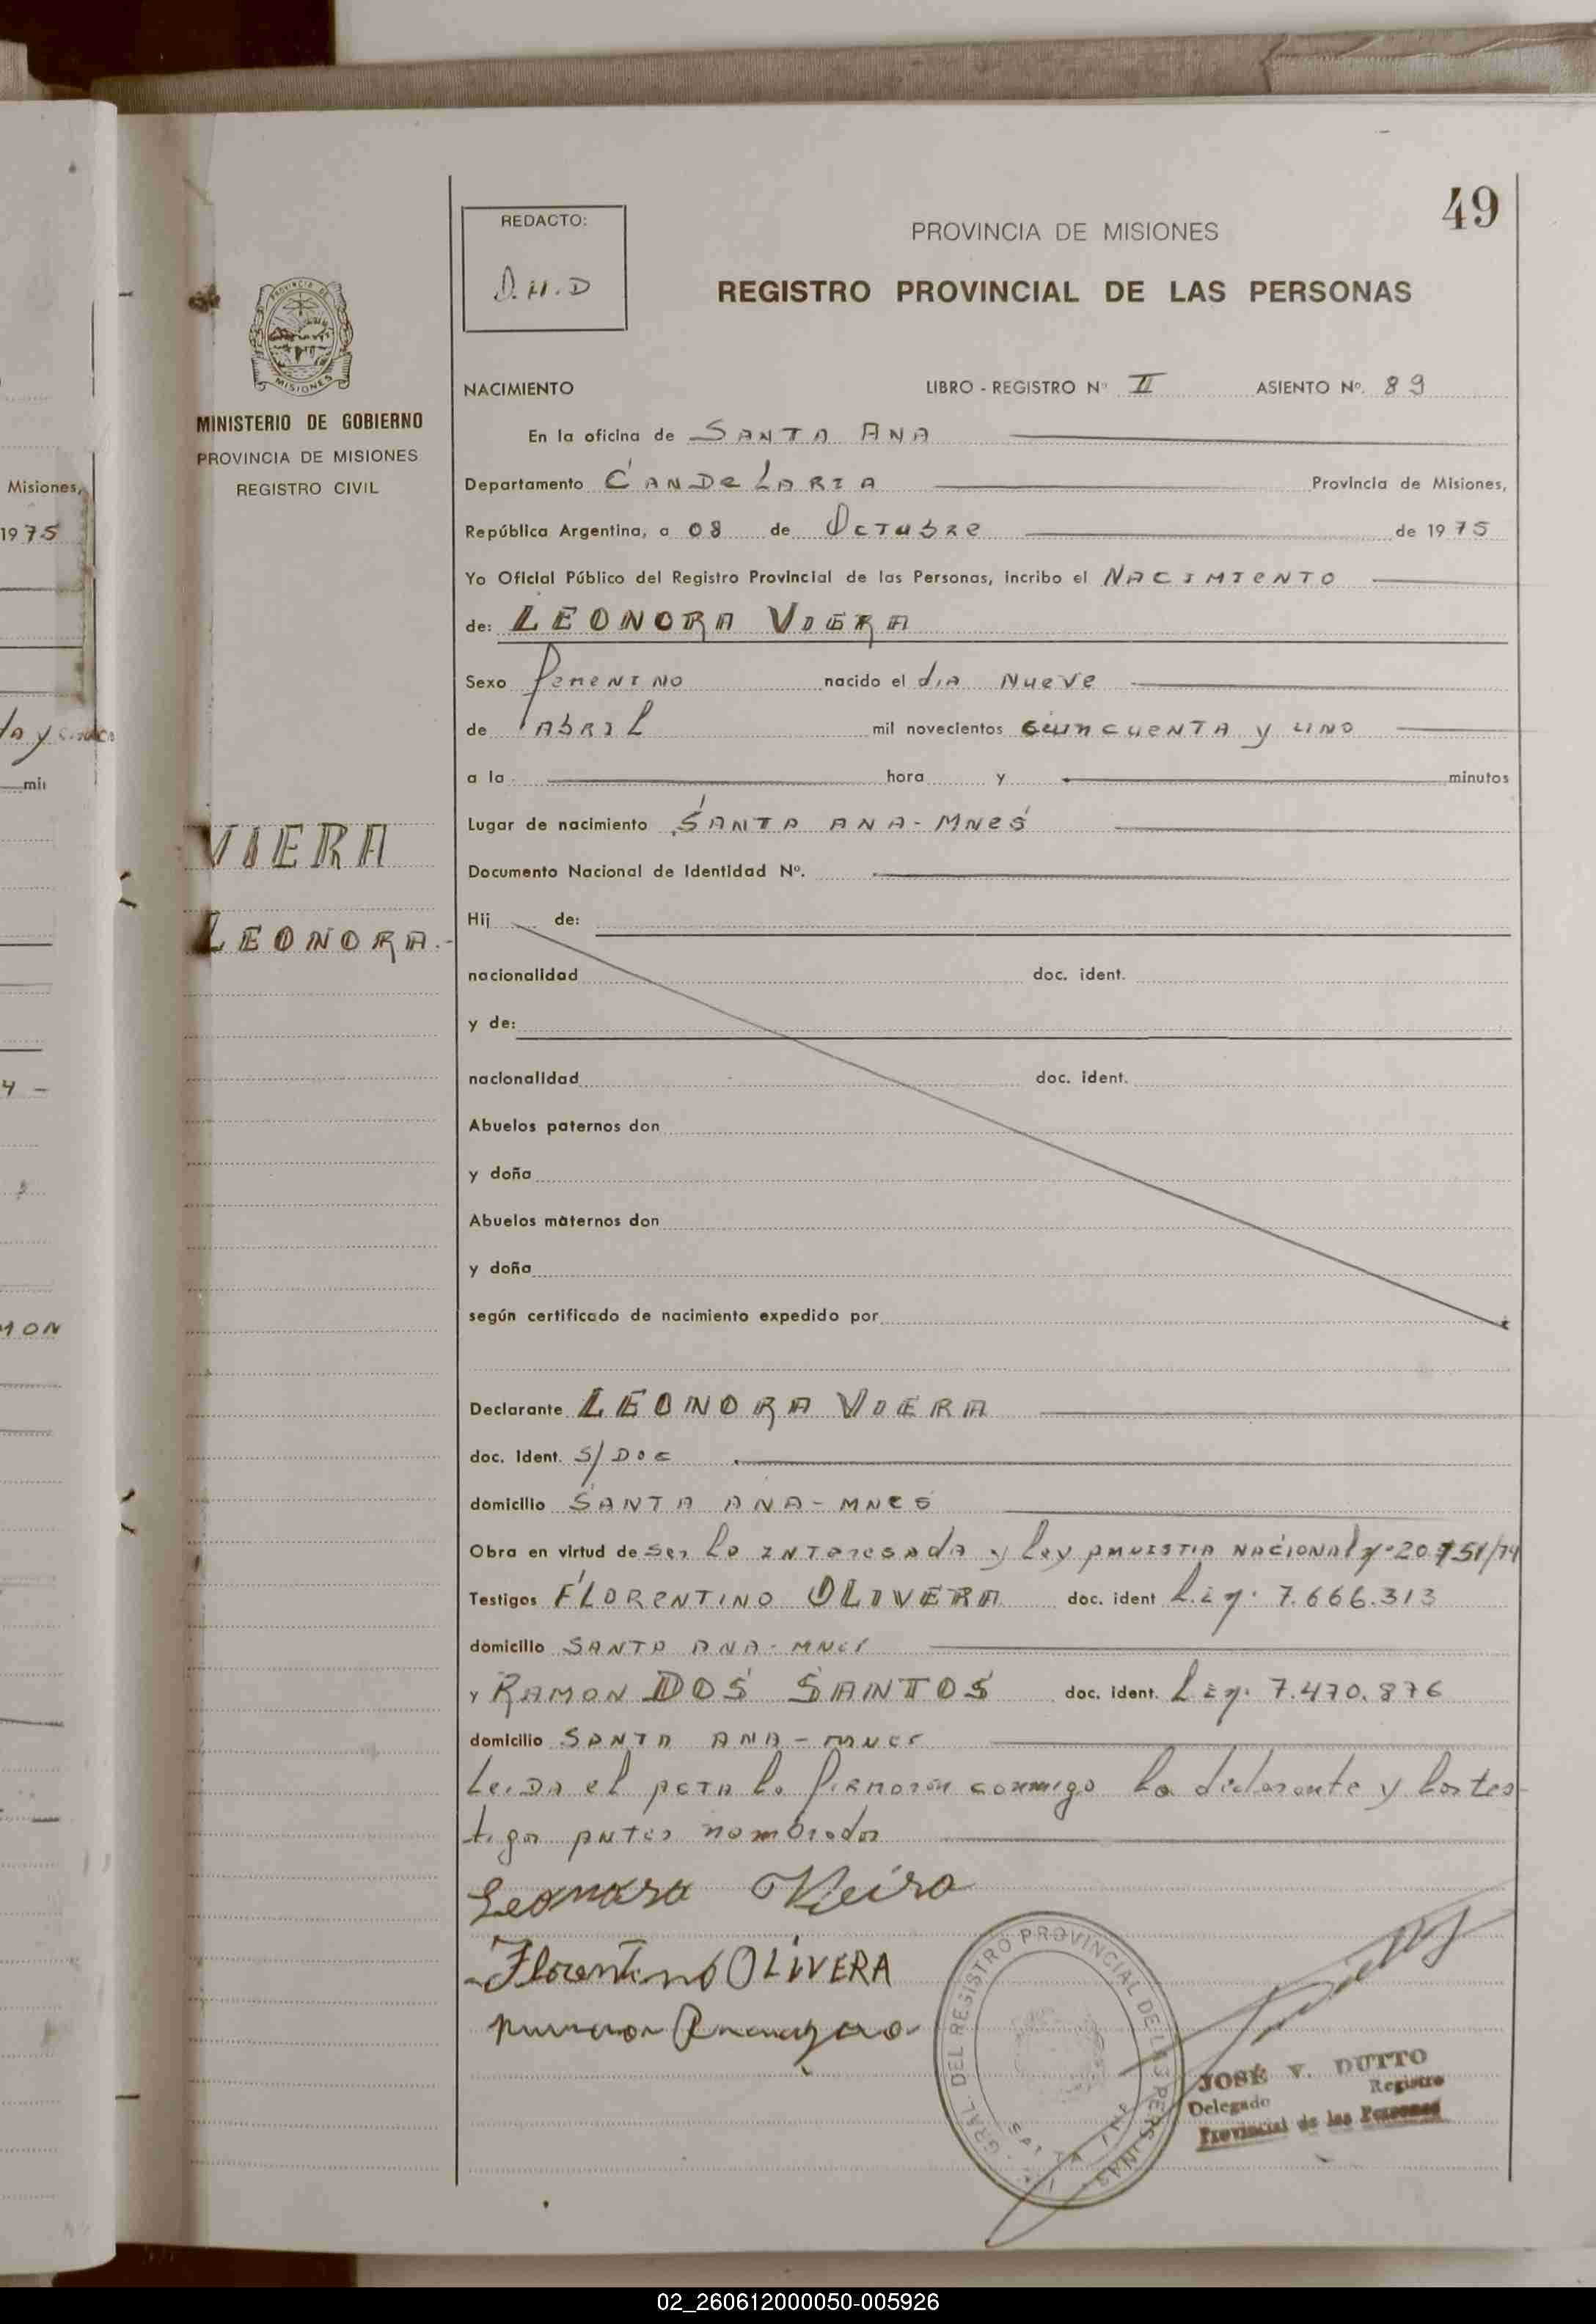 49
REDACTO:
D.H.D
PROVINCIA DE MISIONES
REGISTRO PROVINCIAL DE LAS PERSONAS
PROVINCIA DE
MISIONES
MINISTERIO DE GOBIERNO
PROVINCIA DE MISIONES
REGISTRO CIVIL
NACIMIENTO LIBRO - REGISTRO Nº II ASIENTO Nº. 89
En la oficina de SANTA ANA
Departamento CANDELARIA Provincia de Misiones,
República Argentina, a 08 de Octubre de 1975
Yo Oficial Público del Registro Provincial de las Personas, incribo el NACIMIENTO
de: LEONORA VIERA
Sexo femenino nacido el dia Nueve
de Abril mil novecientos cuincuenta y uno
a la hora y minutos
Lugar de nacimiento SANTA ANA - MNES
Documento Nacional de Identidad Nº.
Hij de:
nacionalidad doc. ident.
y de:
nacionalidad doc. ident.
Abuelos paternos don
y doña
Abuelos maternos don
y doña
según certificado de nacimiento expedido por
Declarante LEONORA VIERA
doc. Ident. S/DOC
domicilio SANTA ANA - MNES
Obra en virtud de ser la interesada y ley amnistia nacional nº 20.751/74
Testigos FLORENTINO OLIVERA doc. ident L.E nº 7.666.313
domicilio SANTA ANA - MNES
y RAMON DOS SANTOS doc. ident. L.E nº 7.470.876
domicilio SANTA ANA - MNES
Leida el acta la firmarón conmigo la declarante y los tes-
tigos antes nombrados
Leonora Vieira
Florentino OLIVERA
VIERA
LEONORA.-
GRAL. DEL REGISTRO PROVINCIAL DE LAS PERSONAS
JOSÉ V. DUTTO
Delegado Registro
Provincial de las Personas
Misiones,
1975
mil
4 -
MON
02_260612000050-005926